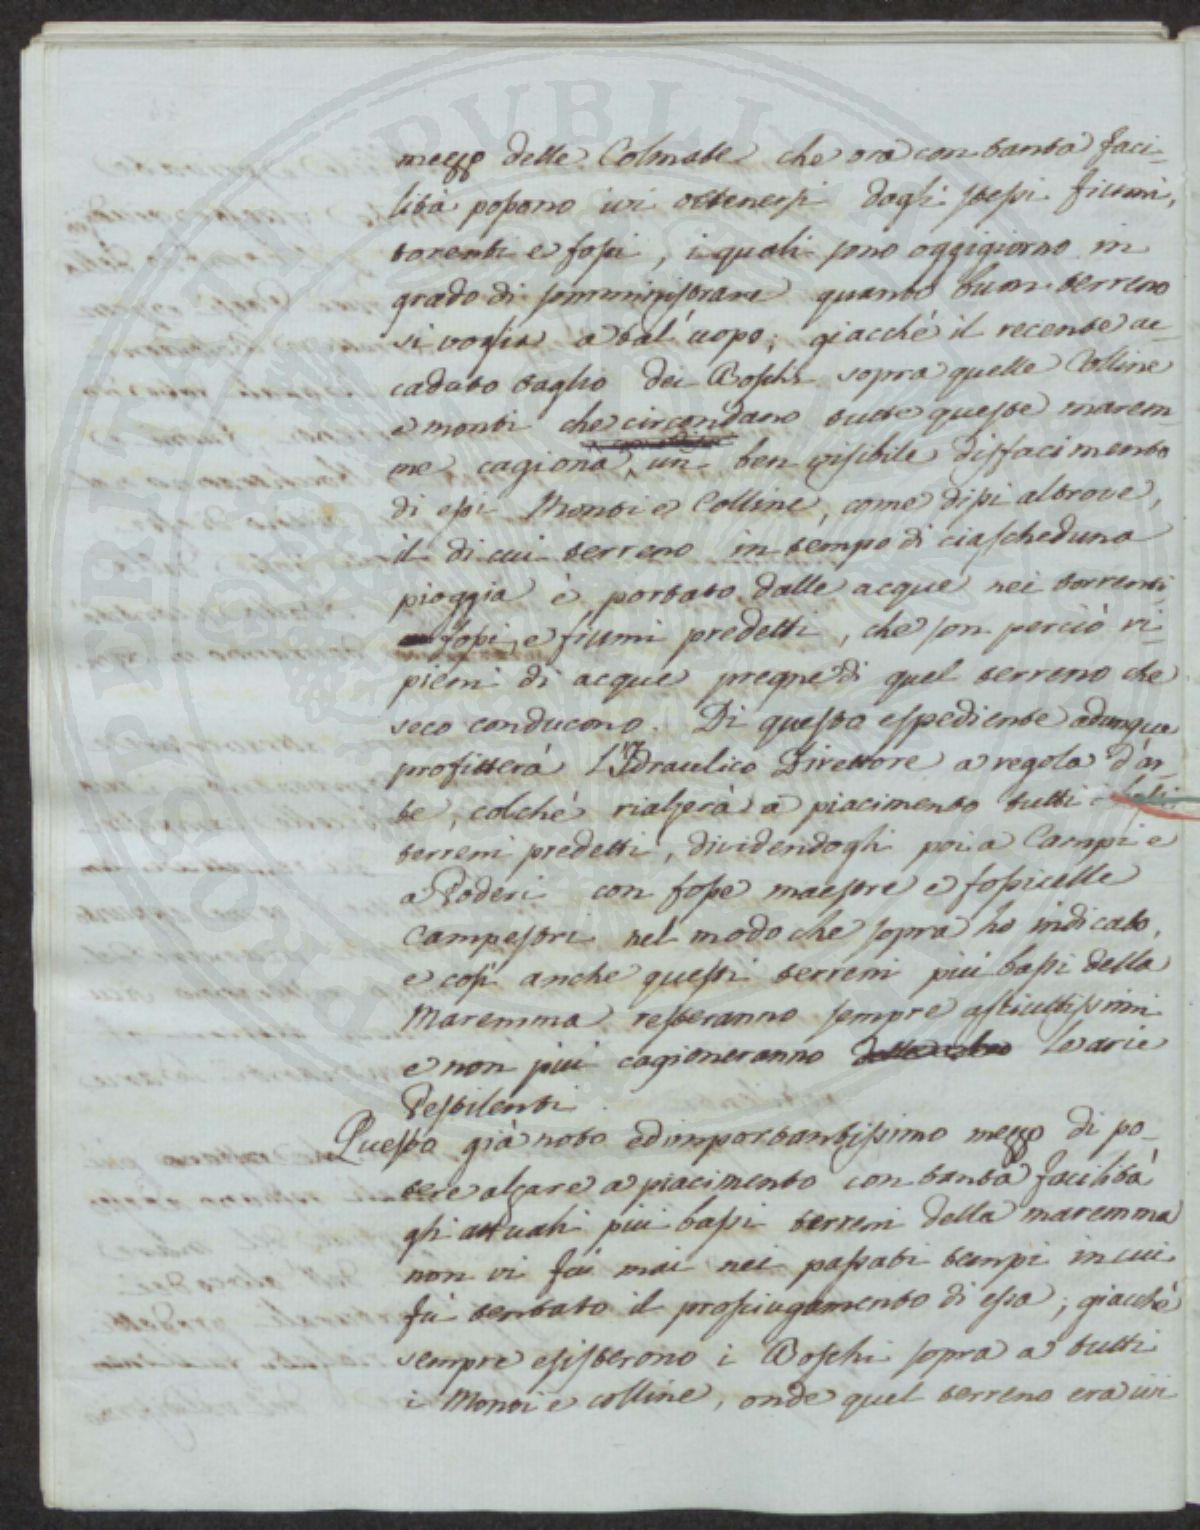 mezzo delle Colmate che ora con tanta faci-
lità possono ivi ottenersi dagli stessi fiumi,
torrenti e fossi, i quali sono oggigiorno in
grado di somministrare quanto buon terreno
si voglia a tal'uopo; giacchè il recente ac-
caduto taglio dei Boschi sopra quelle Colline
e monti che circondano tutte queste marem-
me cagiona un ben visibile disfacimento
di essi Monti e Colline, come dissi altrove,
il di cui terreno in tempo di ciascheduna
pioggia è portato dalle acque nei torrenti
fossi, e fiumi predetti, che son perciò ri-
pieni di acque pregne di quel terreno che
seco conducono. Di questo espediente adunque
profitterà l'Idraulico Direttore a regola d'ar-
te, colchè rialzerà a piacimento tutti
terreni predetti, dividendogli poi a Campi e
a Poderi con fosse maestre e fossicelle
Campestri nel modo che sopra ho indicato,
e così anche questi terreni più bassi della
Maremma resteranno sempre asciuttissimi
e non più cagioneranno le arie
Pestilenti.
Questo già noto ed importantissimo mezzo di po-
tere alzare a piacimento con tanta facilità
gli attuali più bassi terreni della maremma
non vi fù mai nei passati tempi in cui
fù tentato il prosciugamento di essa; giacchè
sempre esisterono i Boschi sopra a tutti
i Monti e colline, onde quel terreno era ivi
PRO PUBLICA